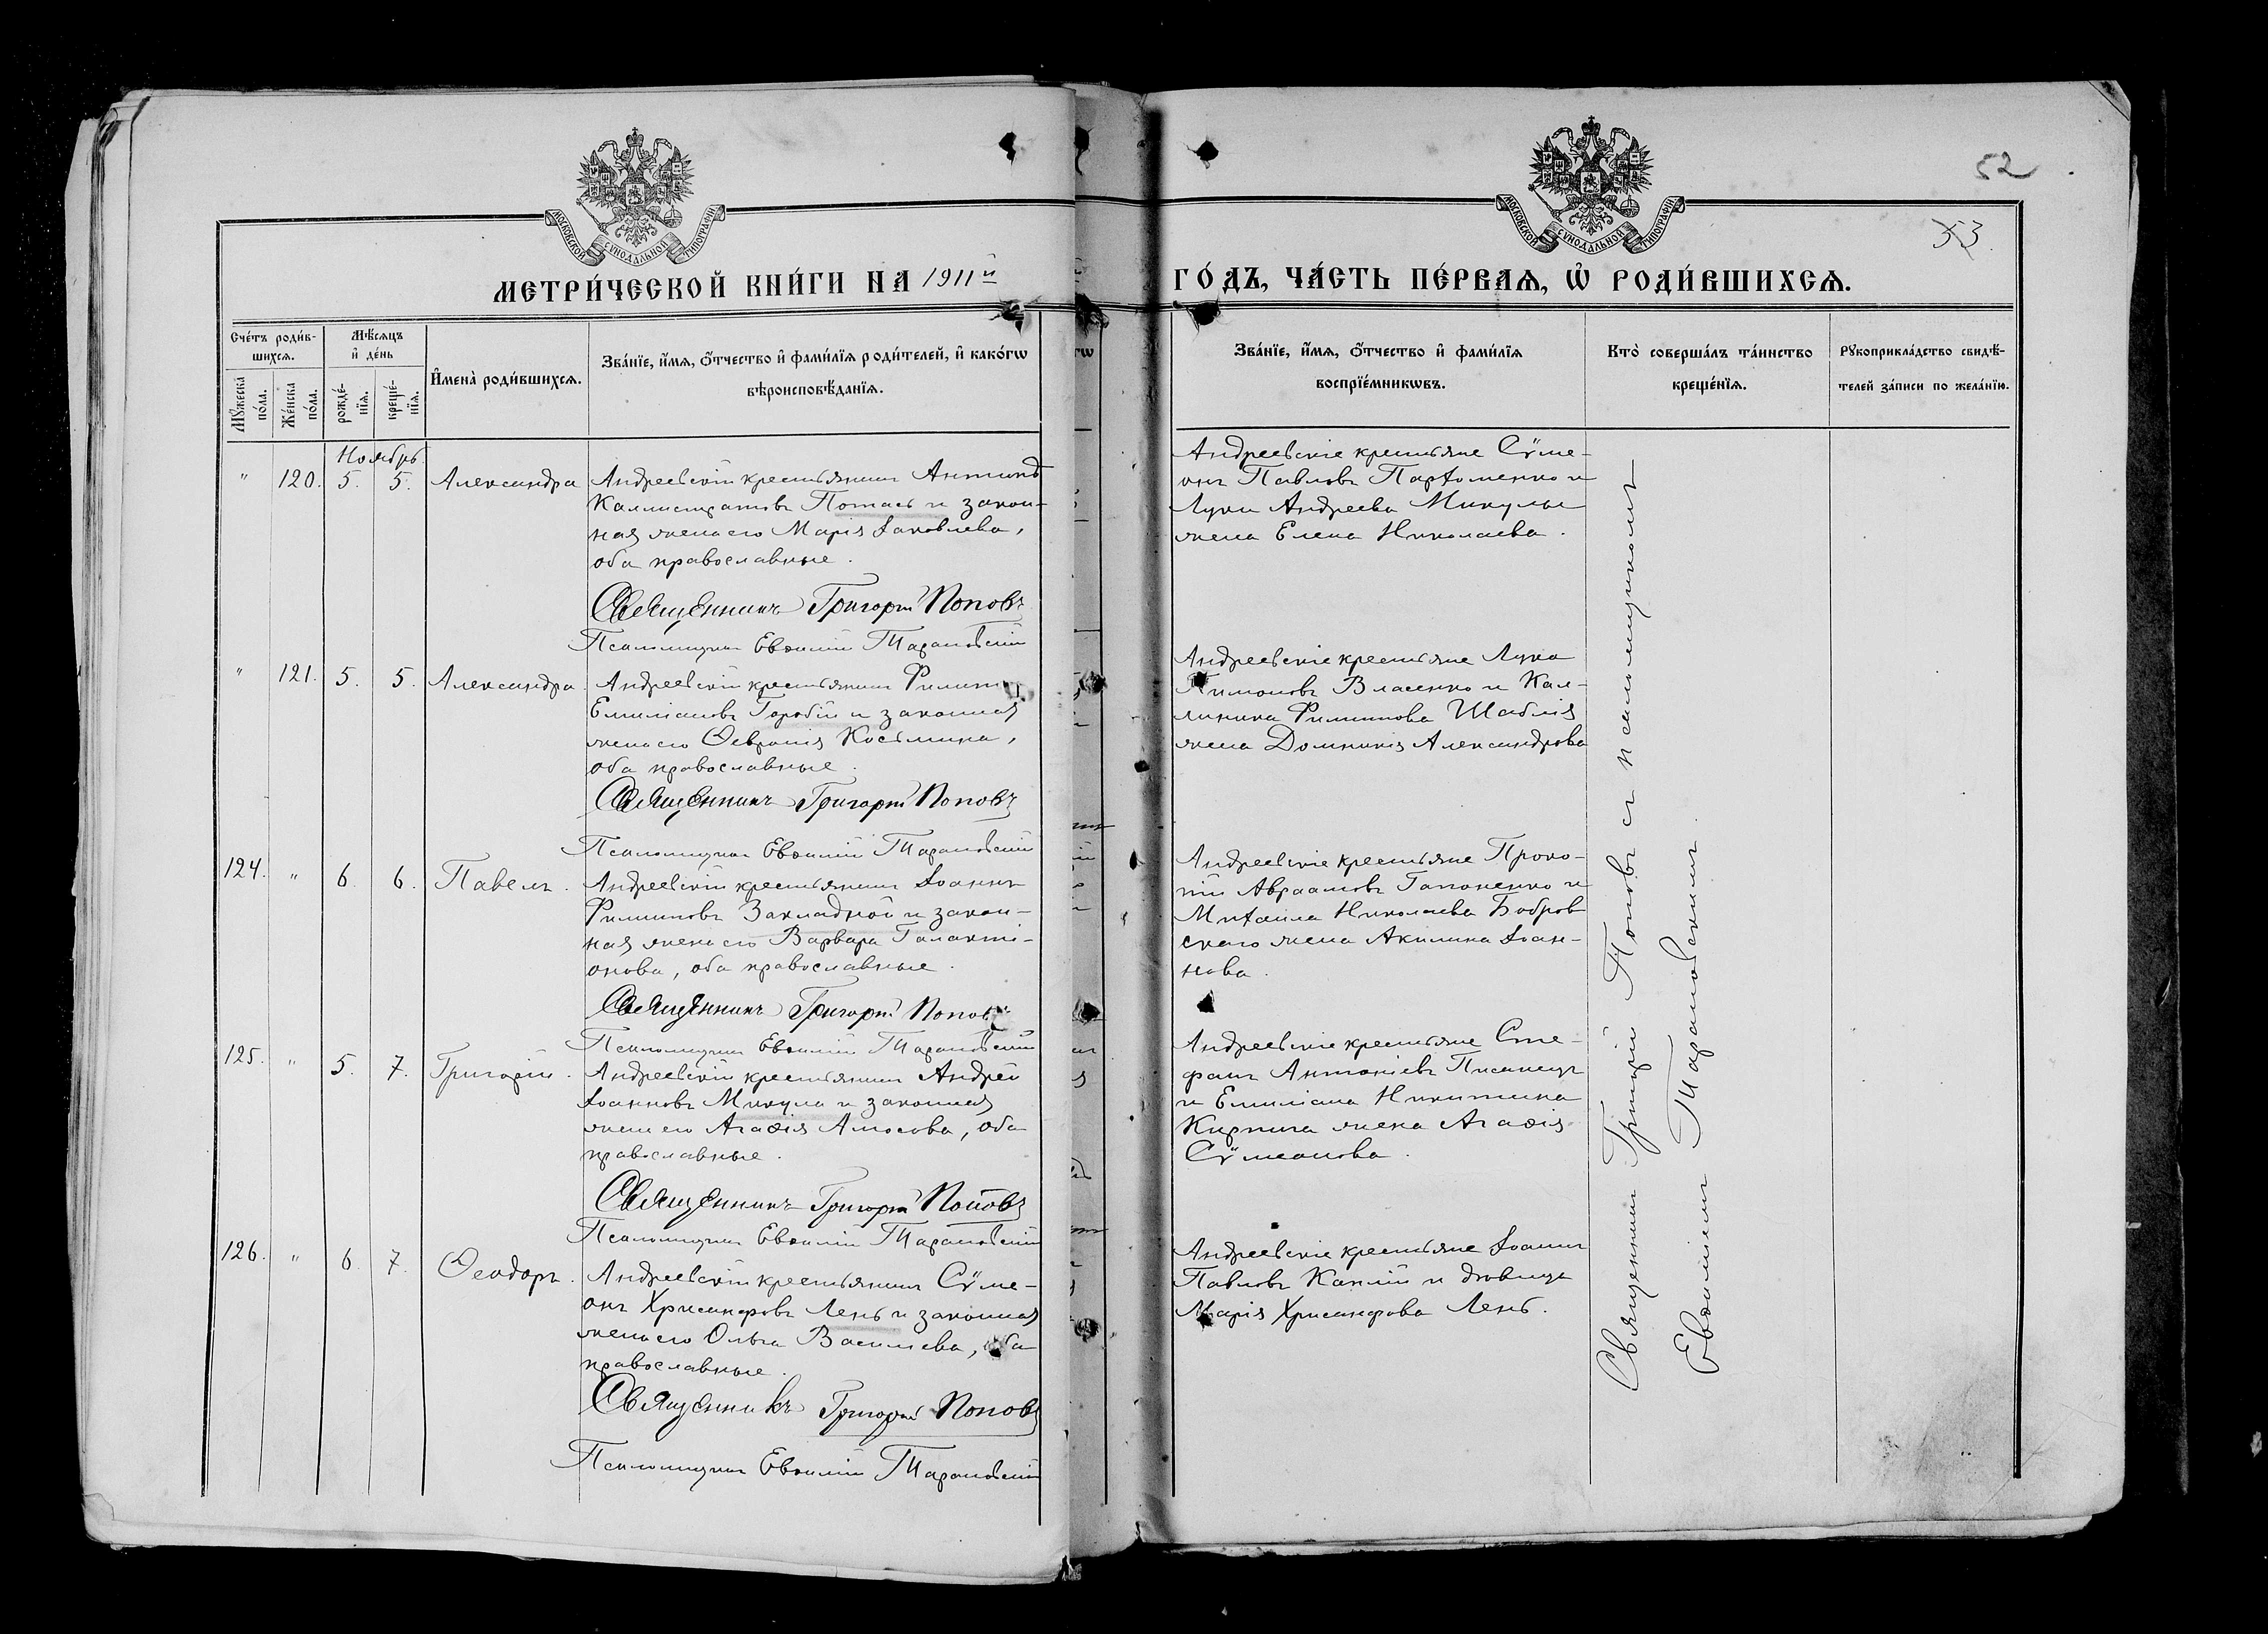 52
53.
МОСКОВСКОЙ СѴНОДАЛЬНОЙ ТИПОГРАФІИ
МОСКОВСКОЙ СѴНОДАЛЬНОЙ ТИПОГРАФІИ
МЕТРИ́ЧЕСКОЙ КНИ́ГИ НА 1911й
ГО́ДЪ, ЧА́СТЬ ПЕ́РВАѦ, Ѽ РОДИ́ВШИХСѦ.
Сче́тъ роди́в-
шихсѧ.
Мꙋ́жеска по́ла.
Же́нска по́ла.
Мѣ́сѧцъ
и҆ де́нь
рожде́-
нїѧ.
креще́-
нїѧ.
И҆мена̀ роди́вшихсѧ.
Зва́нїе, и҆́мѧ, ѻ҆́тчество и҆ фами́лїѧ роди́телей, и҆ како́гѡ
вѣроисповѣ́данїѧ.
Зва́нїе, и҆́мѧ, ѻ҆́тчество и҆ фами́лїѧ
воспрїе́мникѡвъ.
Кто̀ соверша́лъ та́инство
креще́нїѧ.
Рꙋкоприкла́дство свидѣ́-
телей за́писи по жела́нїю.
Ноябрь.
" 120. 5. 5. Александра
Андреевскій крестьянинъ Антоній
Каллистратовъ Потась и закон-
ная жена его Марія Іаковлева,
оба православные.
Священникъ Григорій Поповъ
Псаломщикъ Евѳимій Тарановскій
Андреевскіе крестьяне Сѵме-
онъ Павловъ Пархоменко и
Луки Андреева Микулы
жена Елена Николаева.
" 121. 5. 5. Александра.
Андреевскій крестьянинъ Филиппъ
Емиліановъ Горобій и законная
жена его Февронія Косьмина,
оба православные.
Священникъ Григорій Поповъ
Псаломщикъ Евѳимій Тарановскій
Андреевскіе крестьяне Лука
Тимоновъ Власенко и Кал-
линика Филиппова Шаблія
жена Домникія Александрова
124. " 6. 6. Павелъ.
Андреевскій крестьянинъ Іоаннъ
Филипповъ Закладной и закон-
ная жена его Варвара Галакті-
онова, оба православные.
Священникъ Григорій Поповъ
Псаломщикъ Евѳимій Тарановскій
Андреевскіе крестьяне Проко-
пій Авраамовъ Гапоненко и
Михаила Николаева Бобров
скаго жена Акилина Іоан-
нова.
125. " 5. 7. Григорій.
Андреевскій крестьянинъ Андрей
Іоанновъ Микула и законная
жена его Агаѳія Амосова, оба
православные.
Священникъ Григорій Поповъ
Псаломщикъ Евѳимій Тарановскій
Андреевскіе крестьяне Сте-
фанъ Антоніевъ Писанецъ
и Емиліана Никитина
Кирпича жена Агаѳія
Сѵмеонова.
126. " 6. 7. Ѳеодоръ.
Андреевскій крестьянинъ Сѵме-
онъ Хрисанфовъ Лень и законная
жена его Ольга Васильева, оба
православные.
Священникъ Григорій Поповъ
Псаломщикъ Евѳимій Тарановскій
Андреевскіе крестьяне Іоаннъ
Павловъ Каплій и дѣвица
Марія Хрисанфова Лень.
Священникъ Григорій Поповъ съ псаломщикомъ
Евѳиміемъ Тарановскимъ.